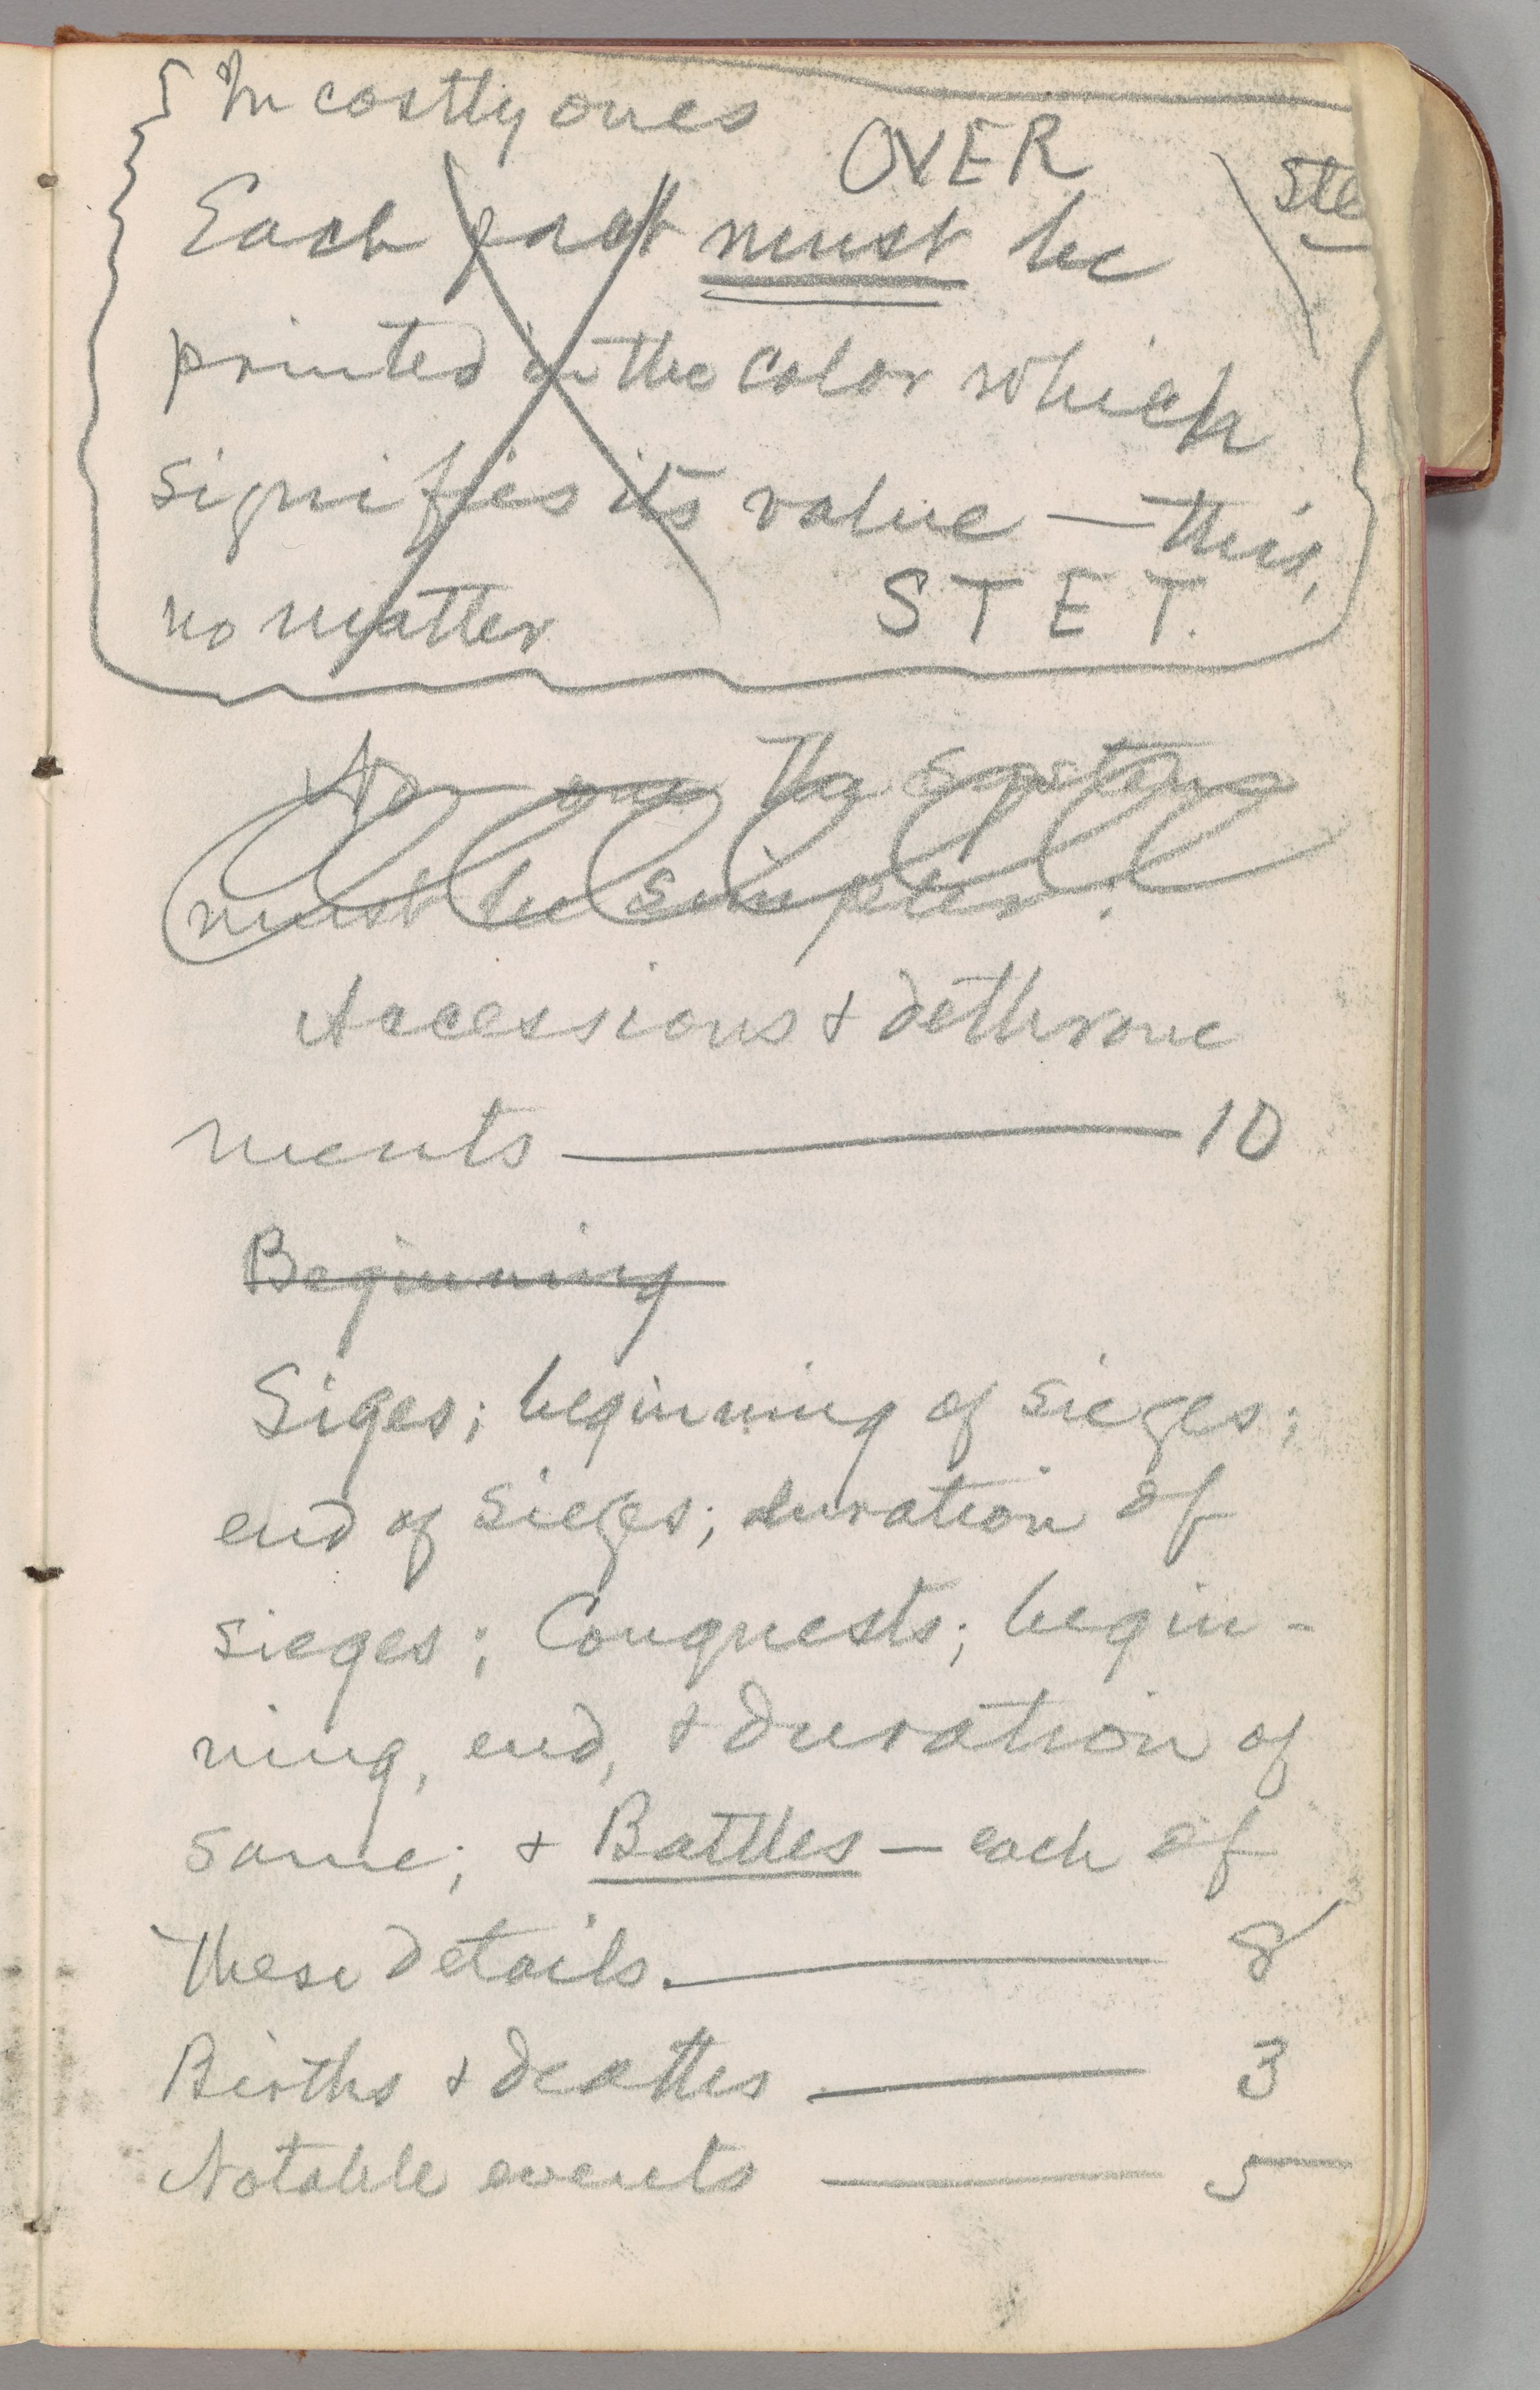 In costly ones
OVER
Each fact must be
printed in the color which
signifies its value — this,
no matter
STET.
No one The system
must be simpler.
Accessions & dethrone
ments — 10
Beginning
Siges; beginning of sieges;
end of sieges; duration of
sieges; Conquests; begin-
ning, end, & duration of
same; & Battles — each of
these details. — 8
Births & deaths — 3
Notable events — 5